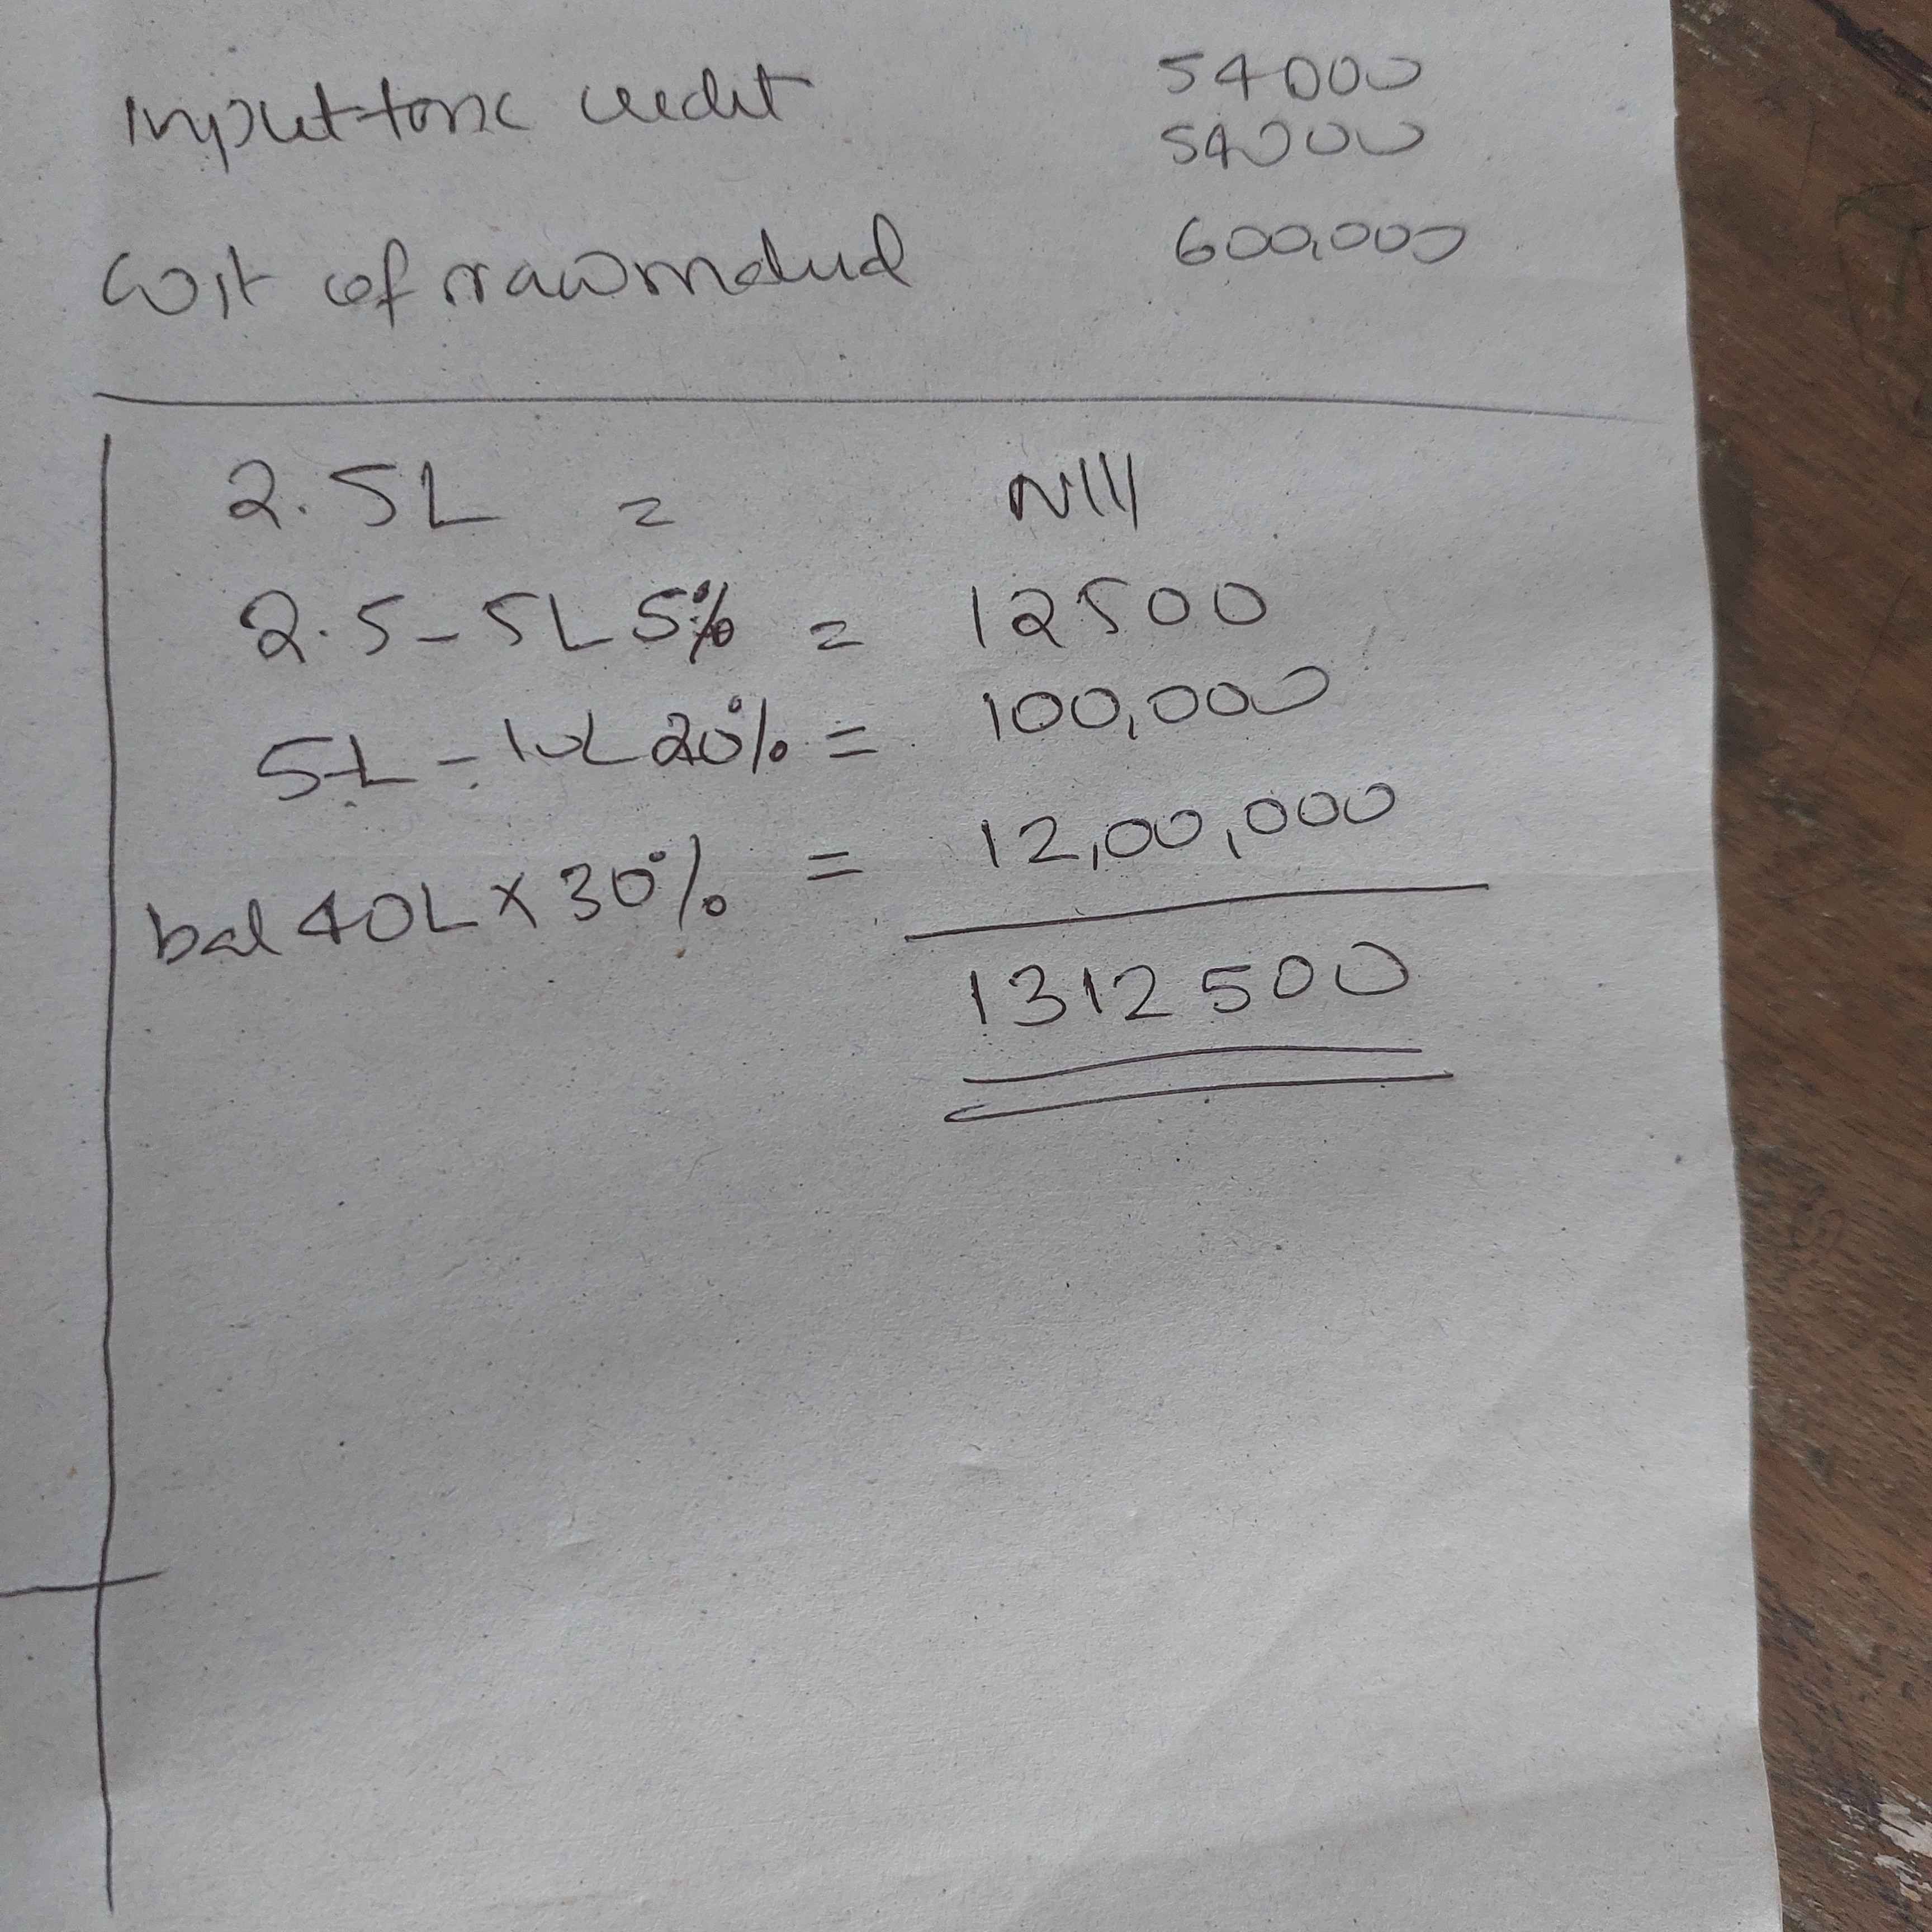 Input tax credit 54000
54000
Cost of raw material 600,000
2.5L = Nill
2.5-5L 5% = 12500
5L-10L 20% = 100,000
bal 40L x 30% = 12,00,000
1312500